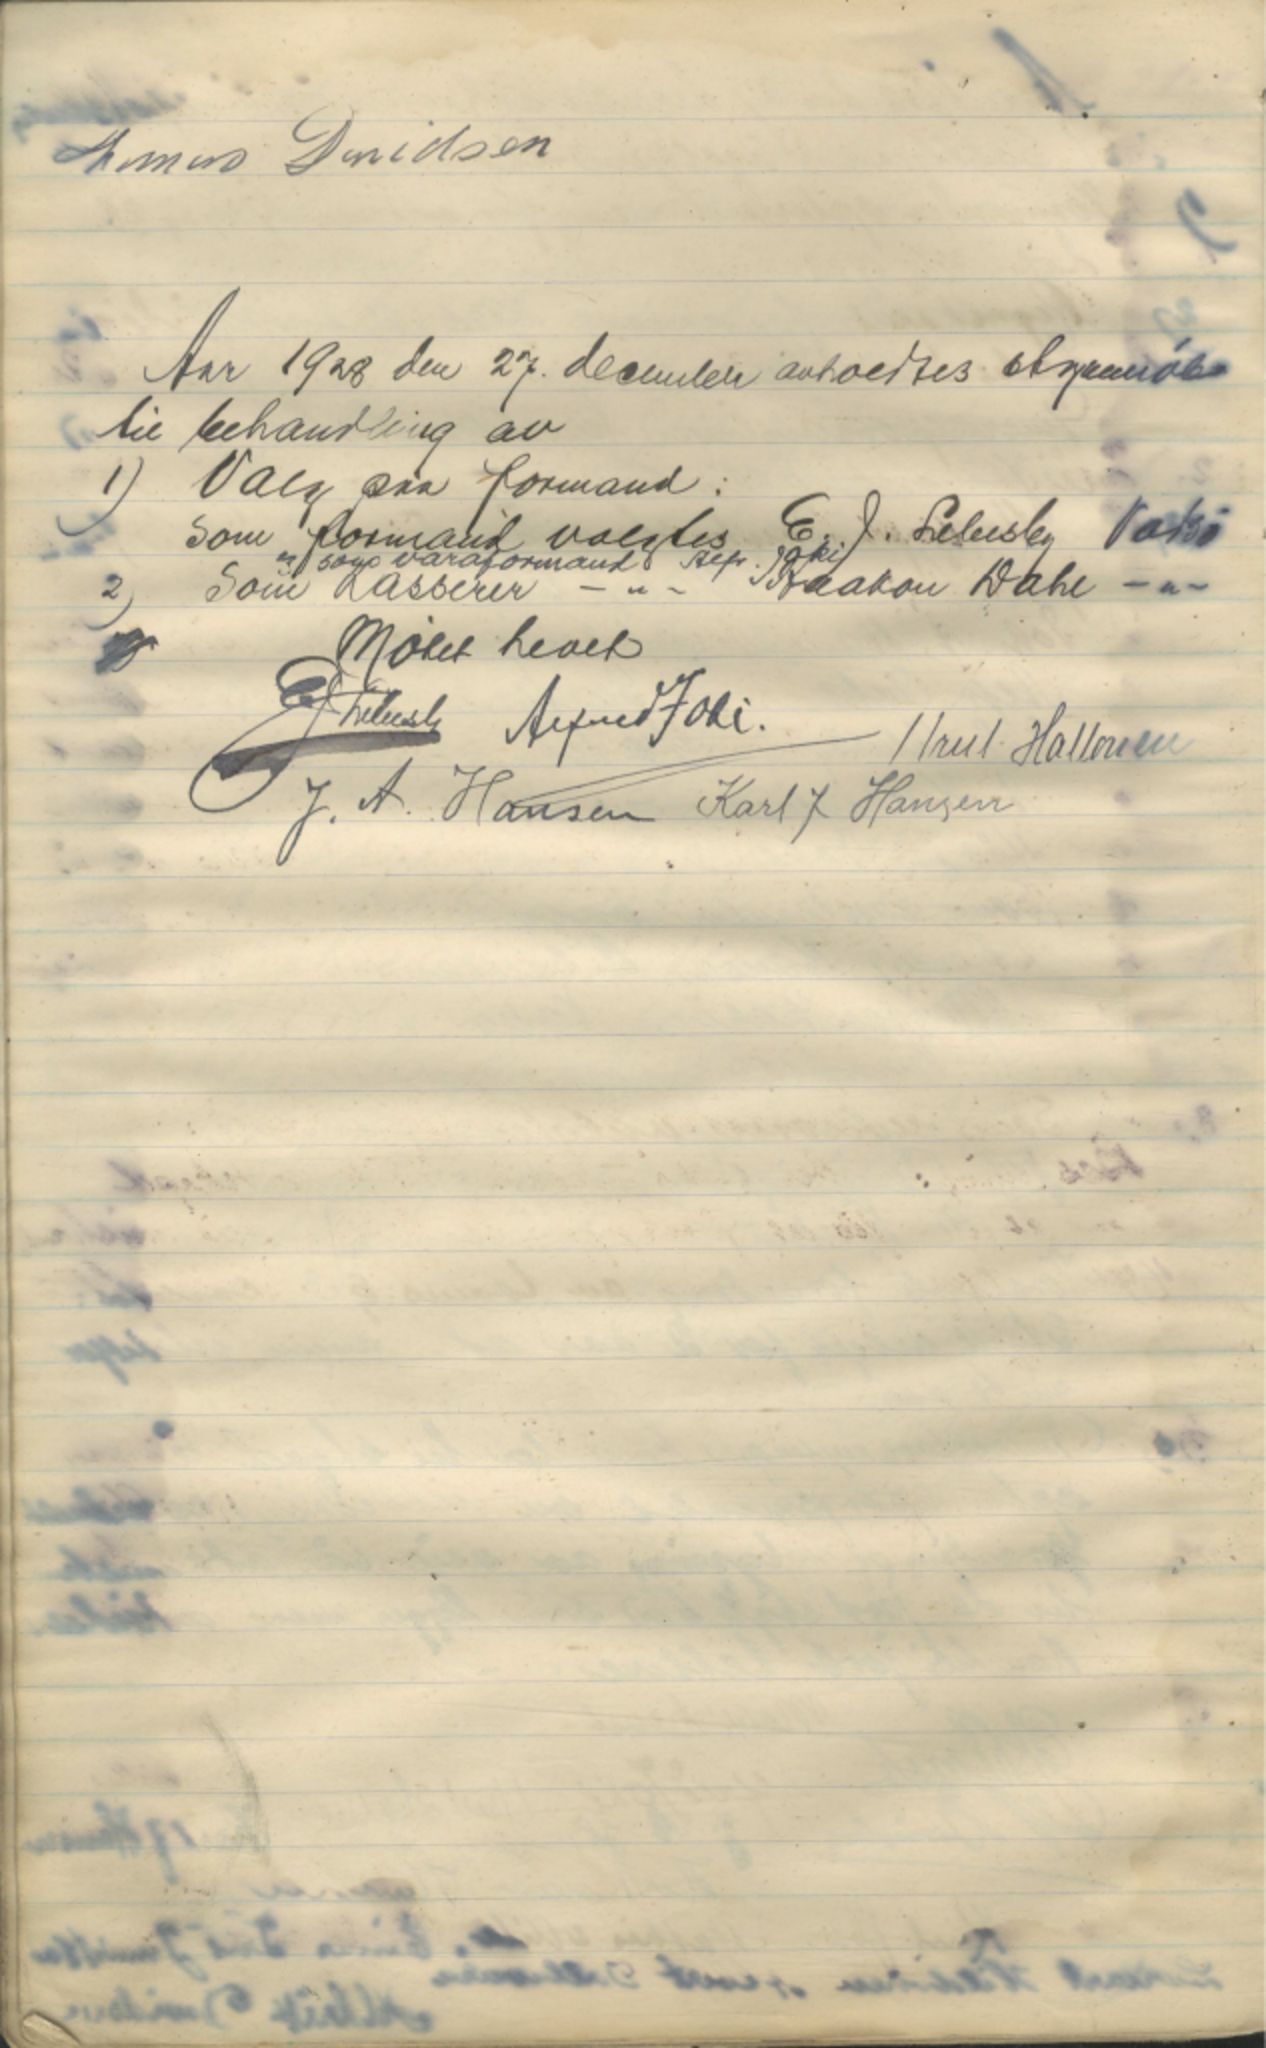 Davidsen
Aar 1928 den 27. december avholdtes styremöte
til behandling av
1) Valg paa formand:
Som formand valgtes E. J. Lebesby Vadsö
" som varaformand Alfr. Joki
2) Som Kasserer - " - Haakon Dahl - " -
Mötet hevet
E J Lebesby Alfred Joki. Hallonen
J. A. Hansen Karl J Hansen